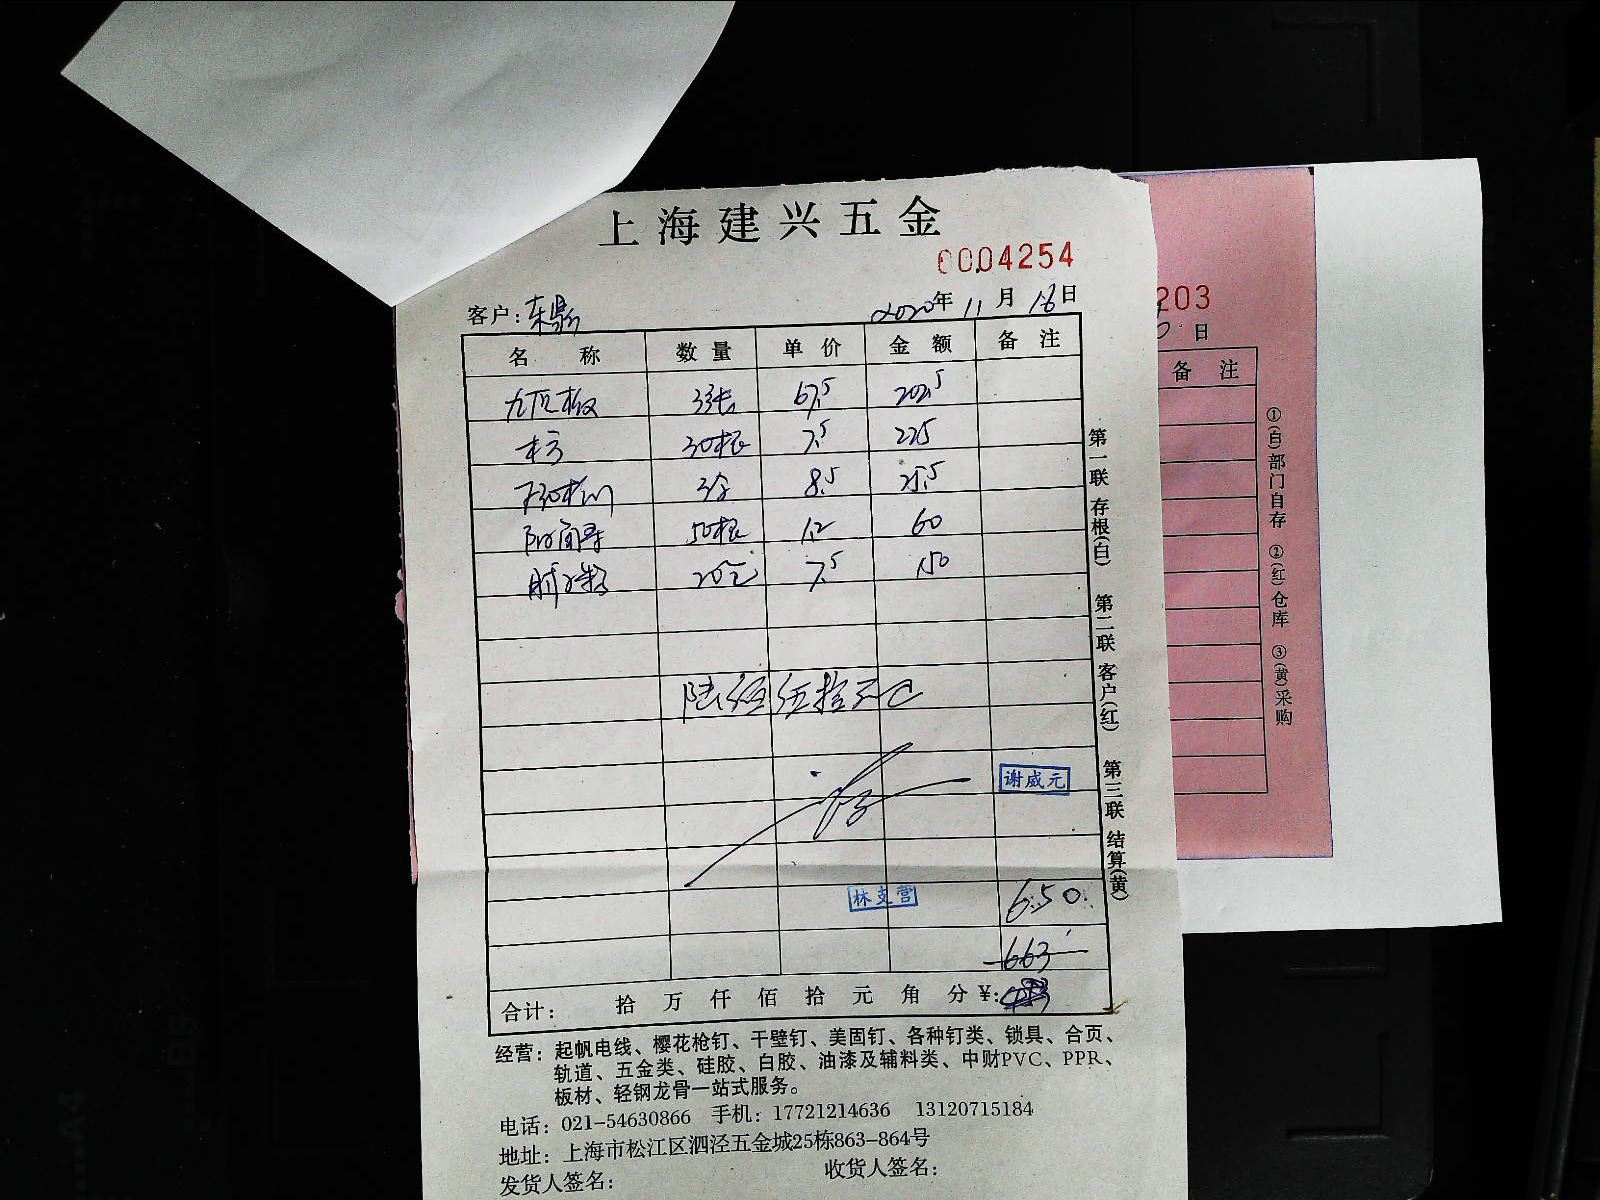 上海建兴五金
0004254
客户: 东鼎 2020年 11月 16日
名 称 数 量 单 价 金 额 备 注
九厘板 3张 67.5 202.5
木方 30根 7.5 225
3盒 8.5 25.5
阴角条 50根 1.2 60
20包 7.5 150
陆佰伍拾元
谢威元
林支营
650.
663
合计: 拾 万 仟 佰 拾 元 角 分 ¥:
经营: 起帆电线、樱花枪钉、干壁钉、美固钉、各种钉类、锁具、合页、
轨道、五金类、硅胶、白胶、油漆及辅料类、中财PVC、PPR、
板材、轻钢龙骨一站式服务。
电话: 021-54630866 手机: 17721214636 13120715184
地址: 上海市松江区泗泾五金城25栋863-864号
发货人签名: 收货人签名:
第一联 存根(白) 第二联 客户(红) 第三联 结算(黄)
203
日
备 注
①(白)部门自存 ②(红)仓库 ③(黄)采购